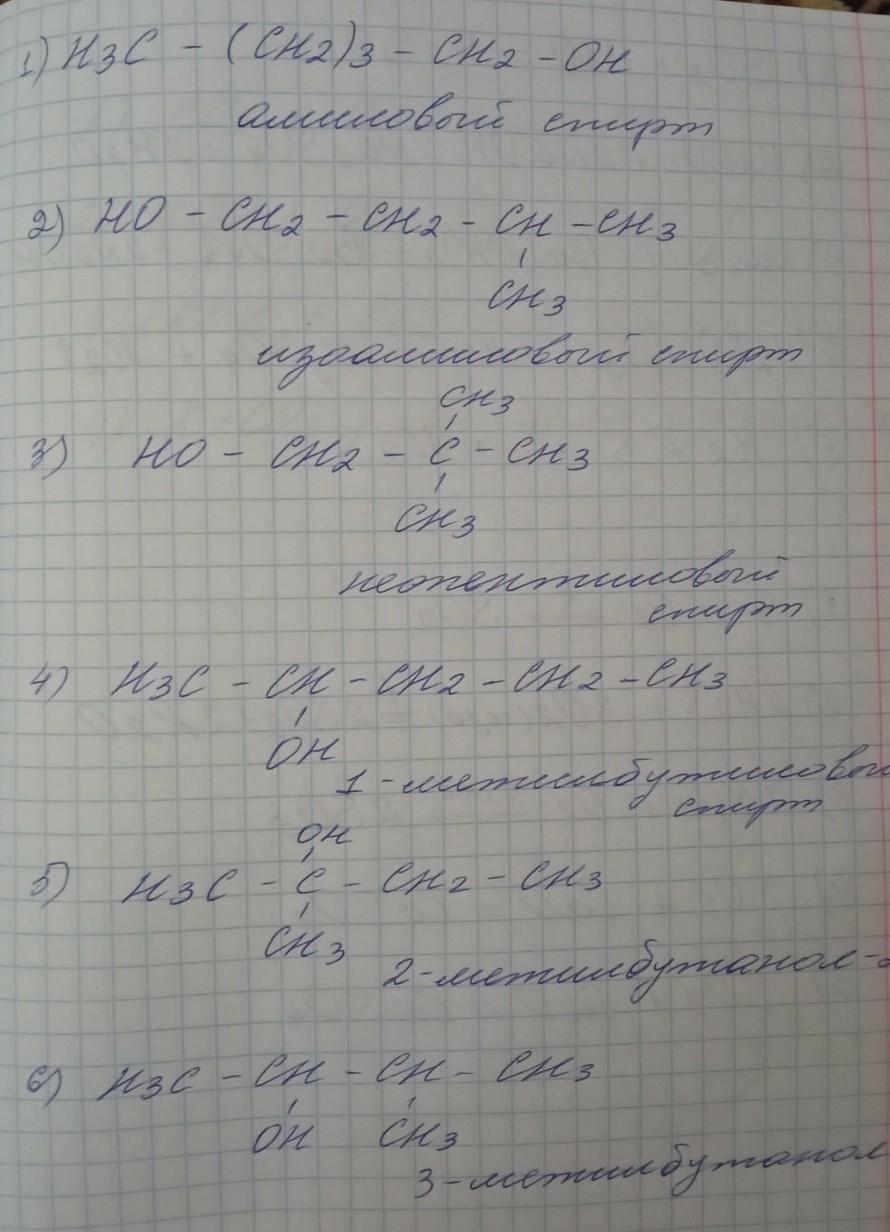 1) H3C - (CH2)3 - CH2 - OH
амиловый спирт
2) HO - CH2 - CH2 - CH - CH3
CH3
изоамиловый спирт
CH3
3) HO - CH2 - C - CH3
CH3
неопентиловый
спирт
4) H3C - CH - CH2 - CH2 - CH3
OH
1-метилбутиловый
спирт
OH
5) H3C - C - CH2 - CH3
CH3
2-метилбутанол-
6) H3C - CH - CH - CH3
OH CH3
3-метилбутанол